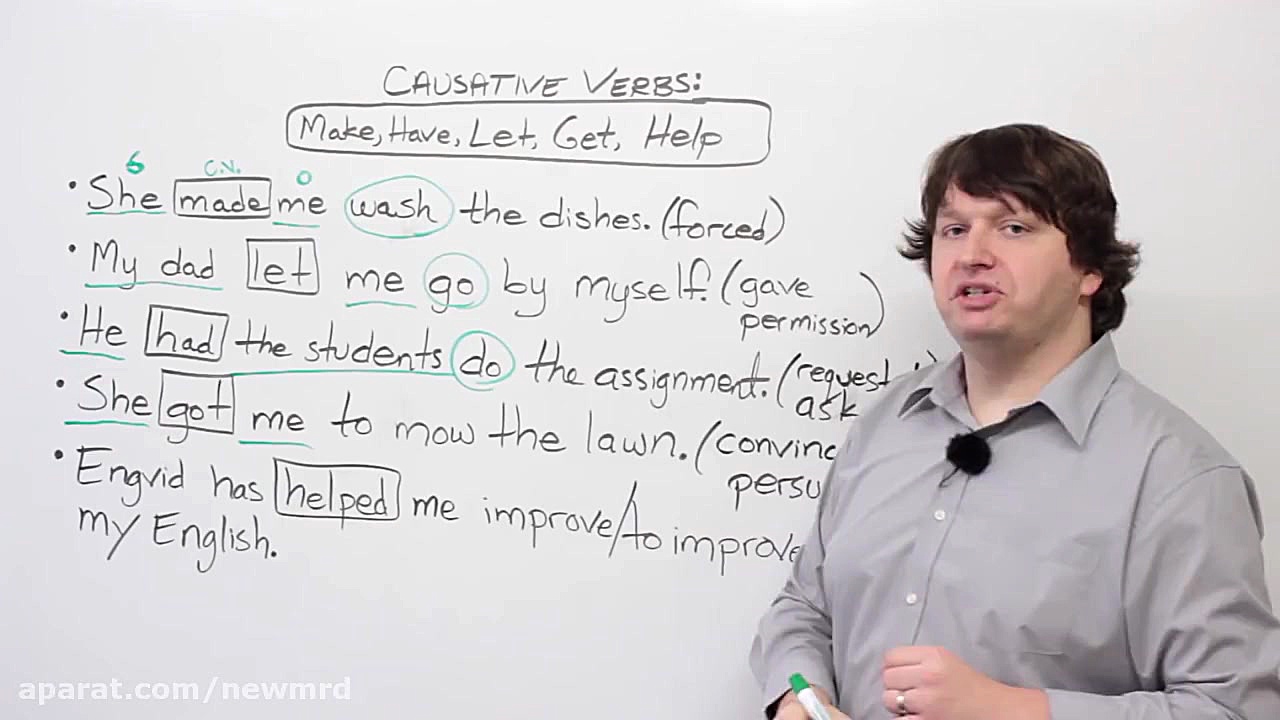 CAUSATIVE VERBS:
Make, Have, Let, Get, Help
S C.V. O
• She made me wash the dishes. (forced)
• My dad let me go by myself. (gave
permission)
• He had the students do the assignment. (request
ask
• She got me to mow the lawn. (convinc
persu
• Engvid has helped me improve/to improve
my English.
aparat.com/newmrd